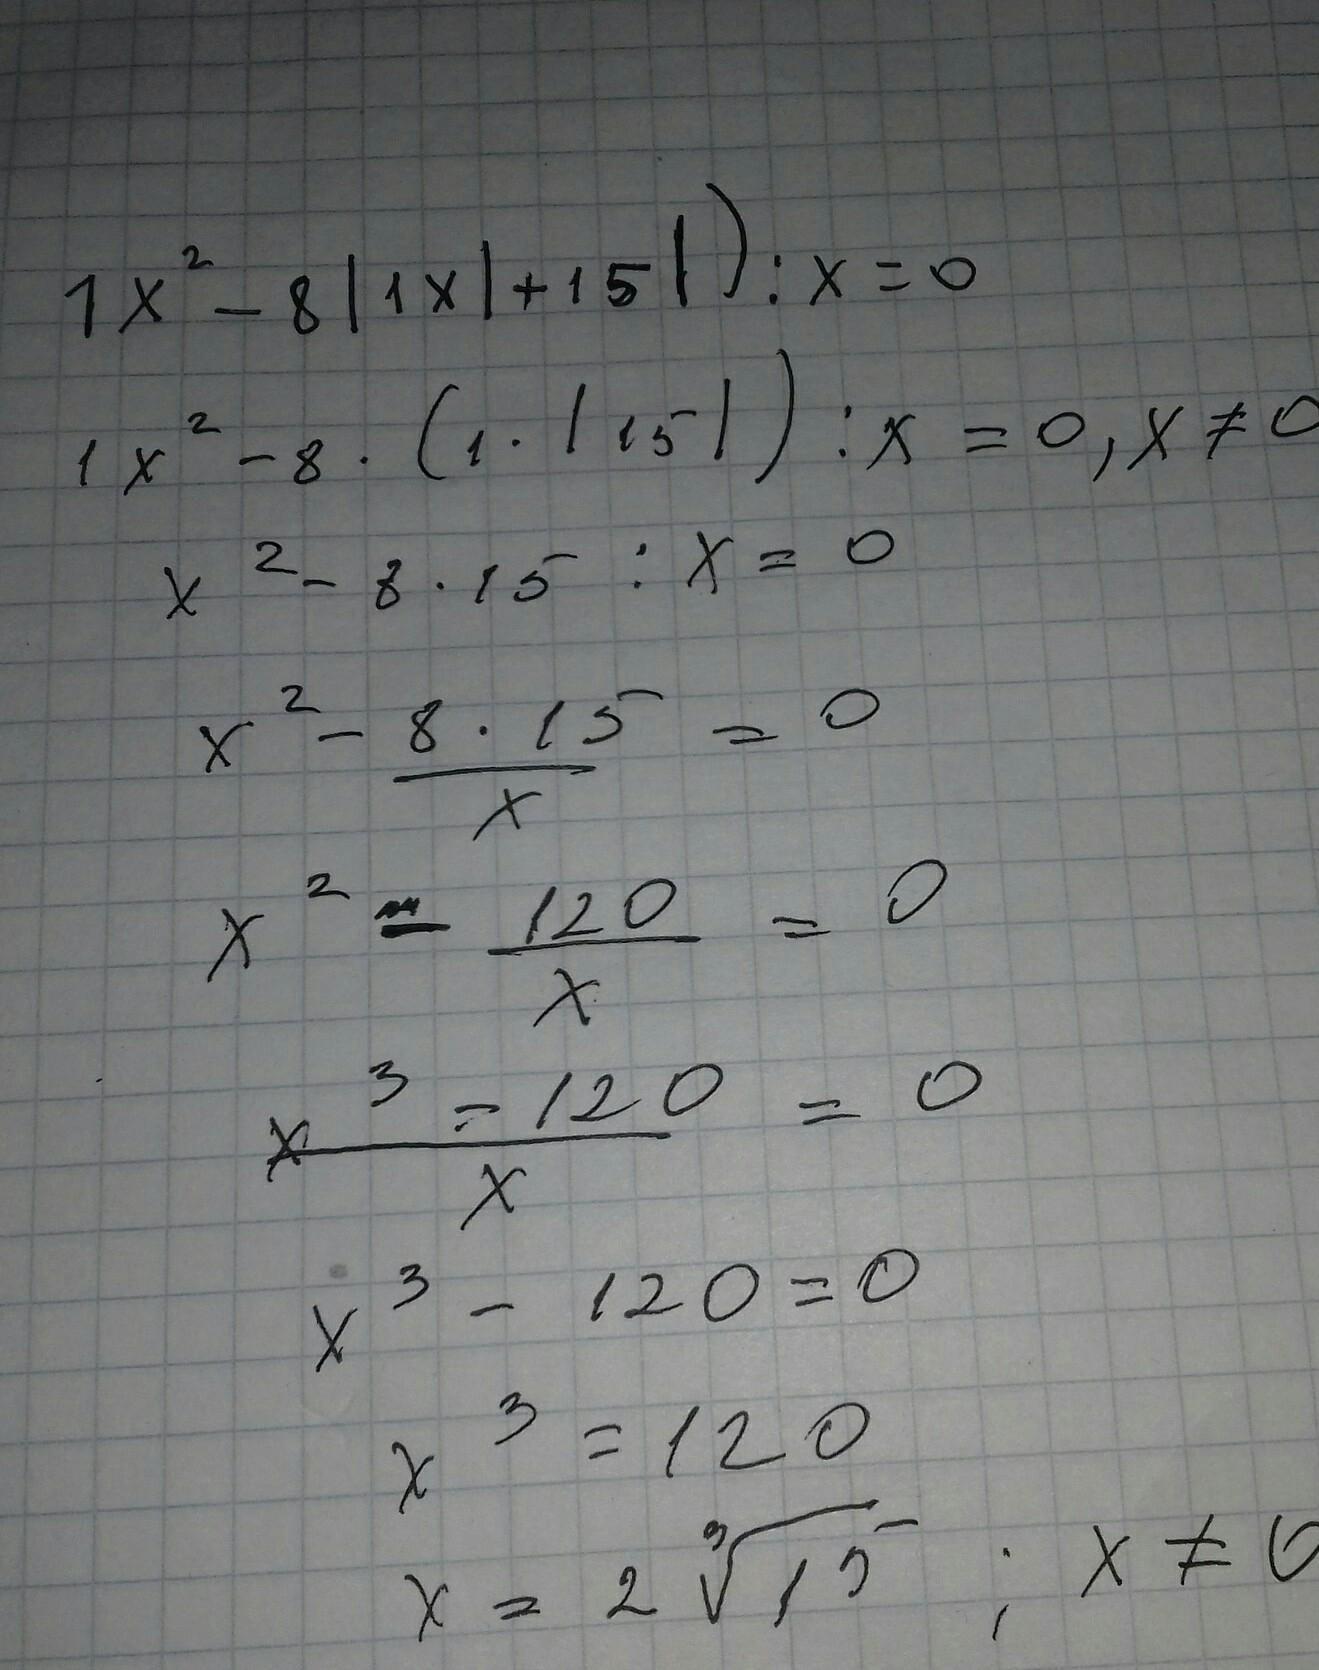 1x² - 8|1x|+15|) : x = 0
1x² - 8 · (1 · |15|) : x = 0, x ≠ 0
x² - 8 · 15 : x = 0
x² - \frac{8 · 15}{x} = 0
x² - \frac{120}{x} = 0
\frac{x³ - 120}{x} = 0
x³ - 120 = 0
x³ = 120
x = 2∛15 ; x ≠ 0